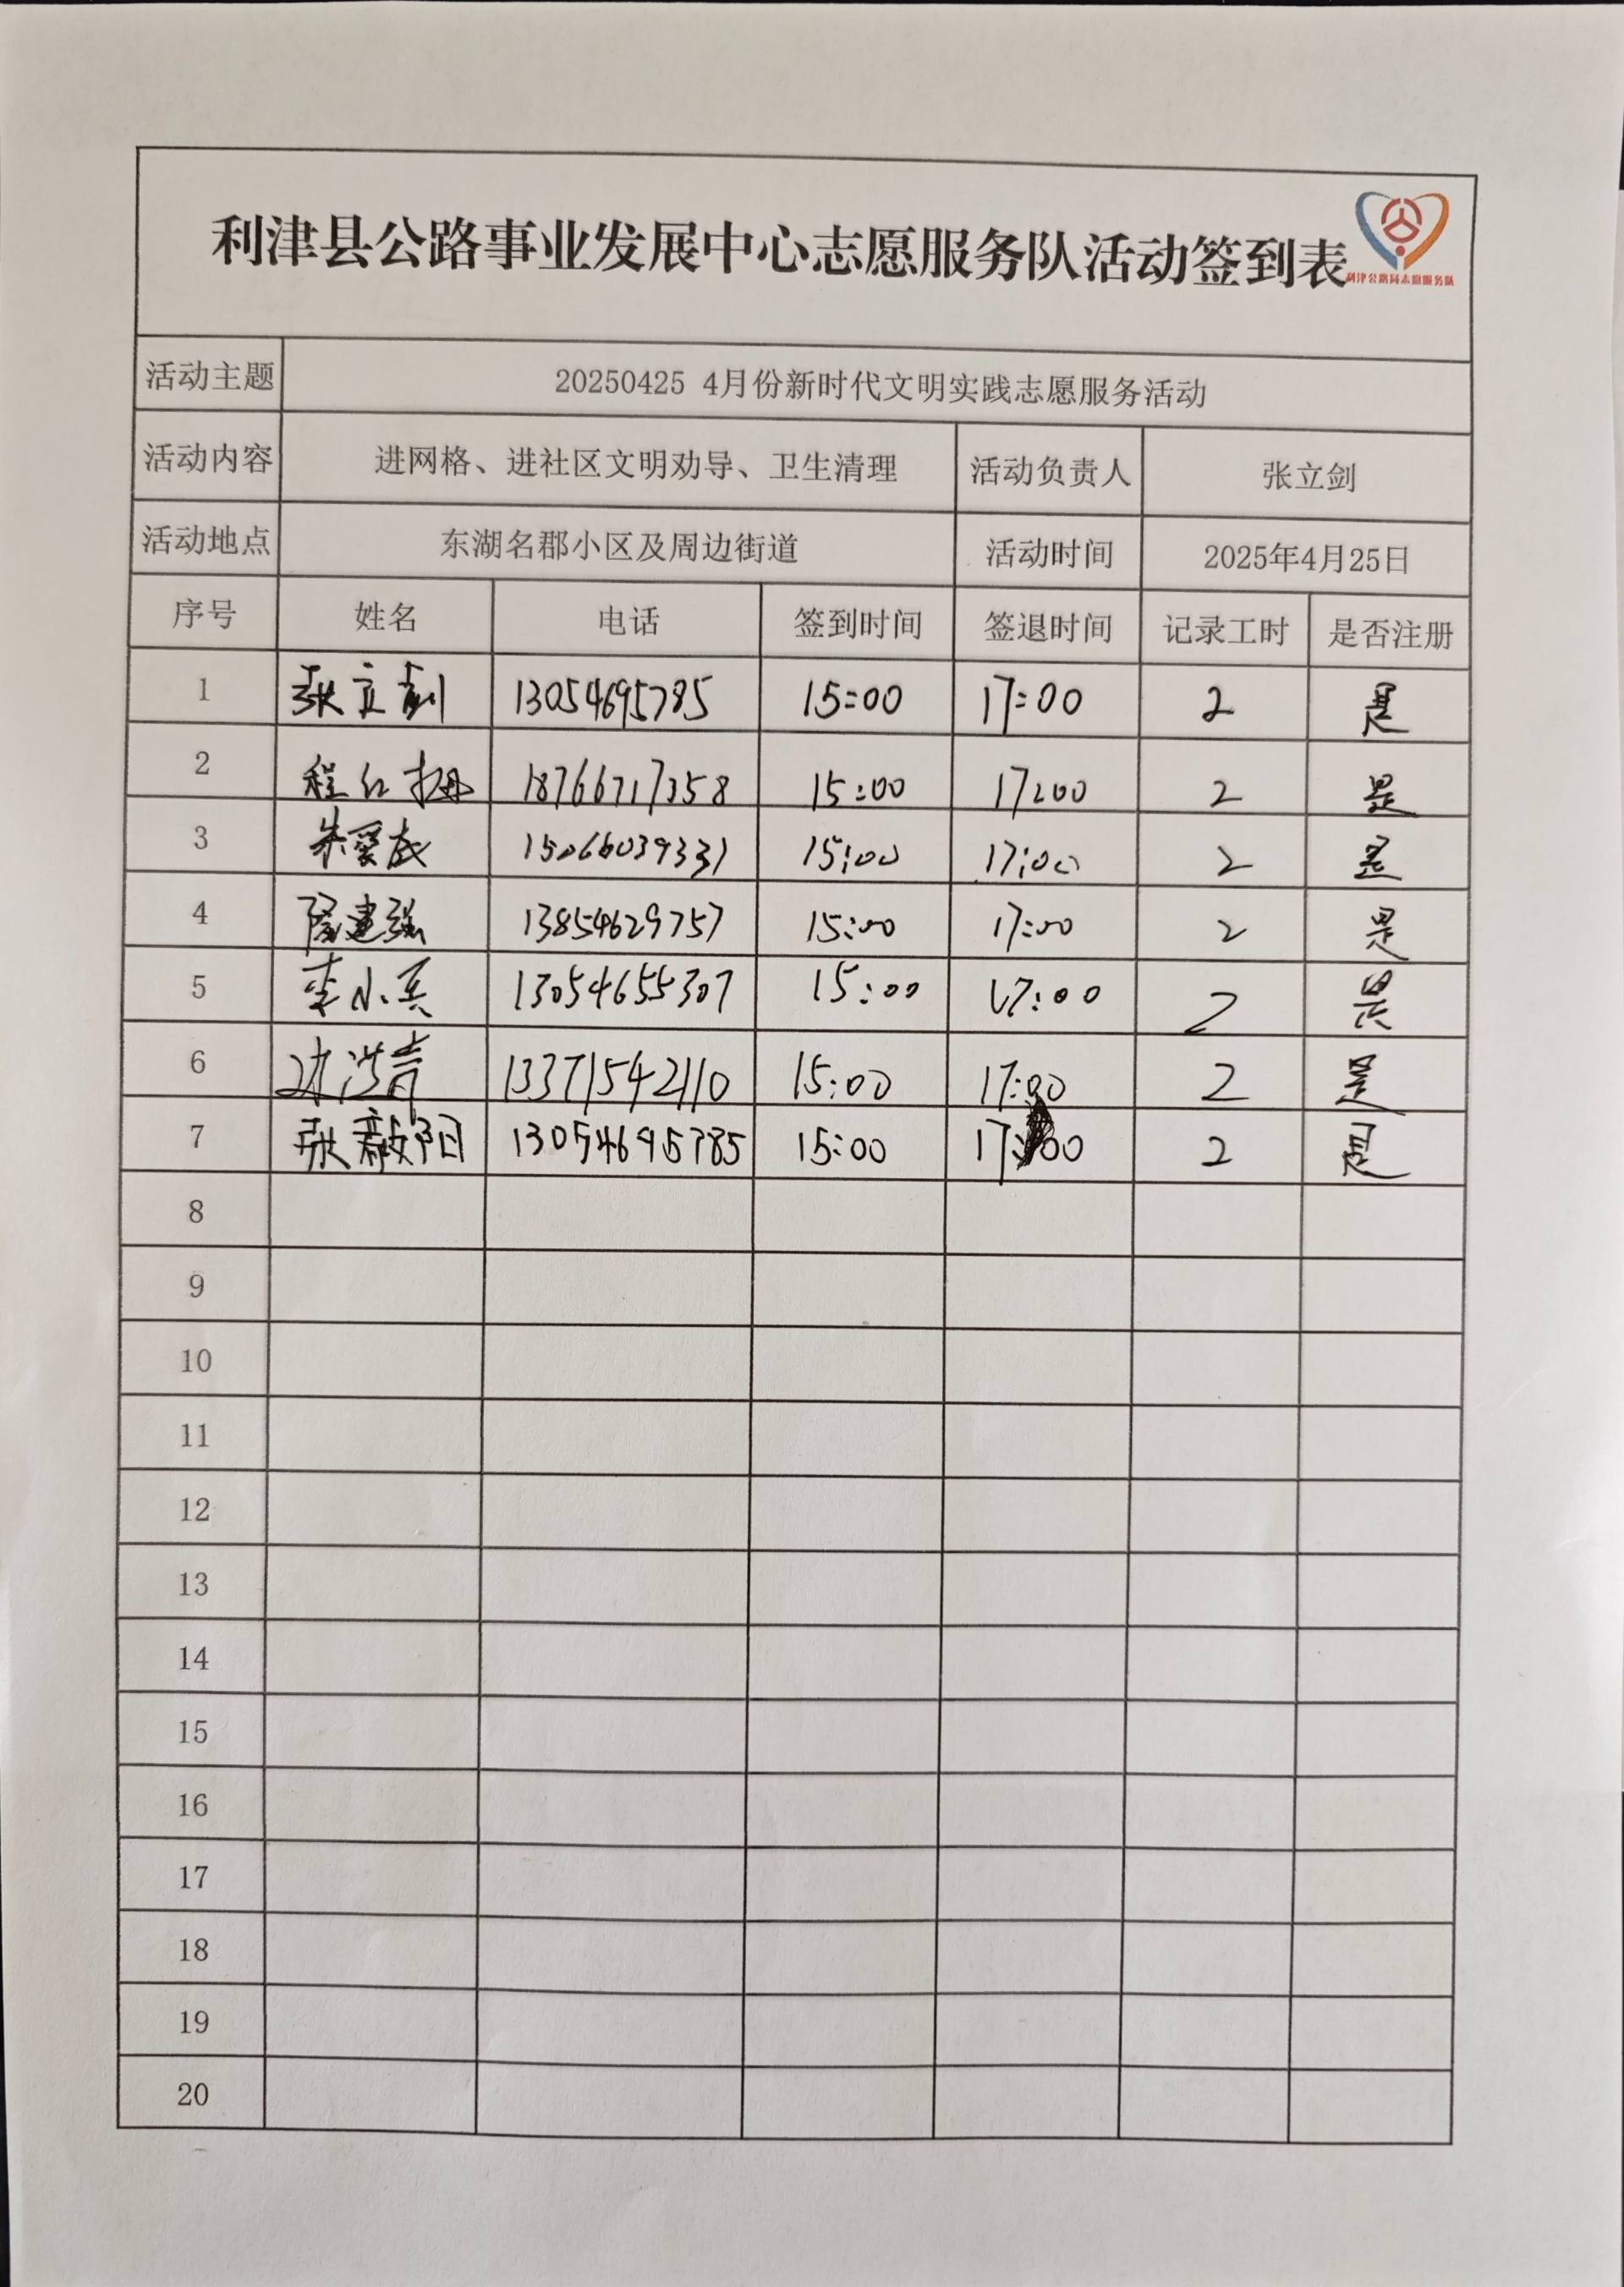 利津县公路事业发展中心志愿服务队活动签到表
利津公路局志愿服务队
活动主题 20250425 4月份新时代文明实践志愿服务活动
活动内容 进网格、进社区文明劝导、卫生清理 活动负责人 张立剑
活动地点 东湖名郡小区及周边街道 活动时间 2025年4月25日
序号 姓名 电话 签到时间 签退时间 记录工时 是否注册
1 张立剑 13054695785 15:00 17:00 2 是
2 程红梅 18766717358 15:00 17:00 2 是
3 朱爱武 15066039331 15:00 17:00 2 是
4 隆建强 13854629757 15:00 17:00 2 是
5 李小兵 13054655307 15:00 17:00 2 是
6 13371542110 15:00 17:00 2 是
7 张敬阳 13054695785 15:00 17:00 2 是
8
9
10
11
12
13
14
15
16
17
18
19
20